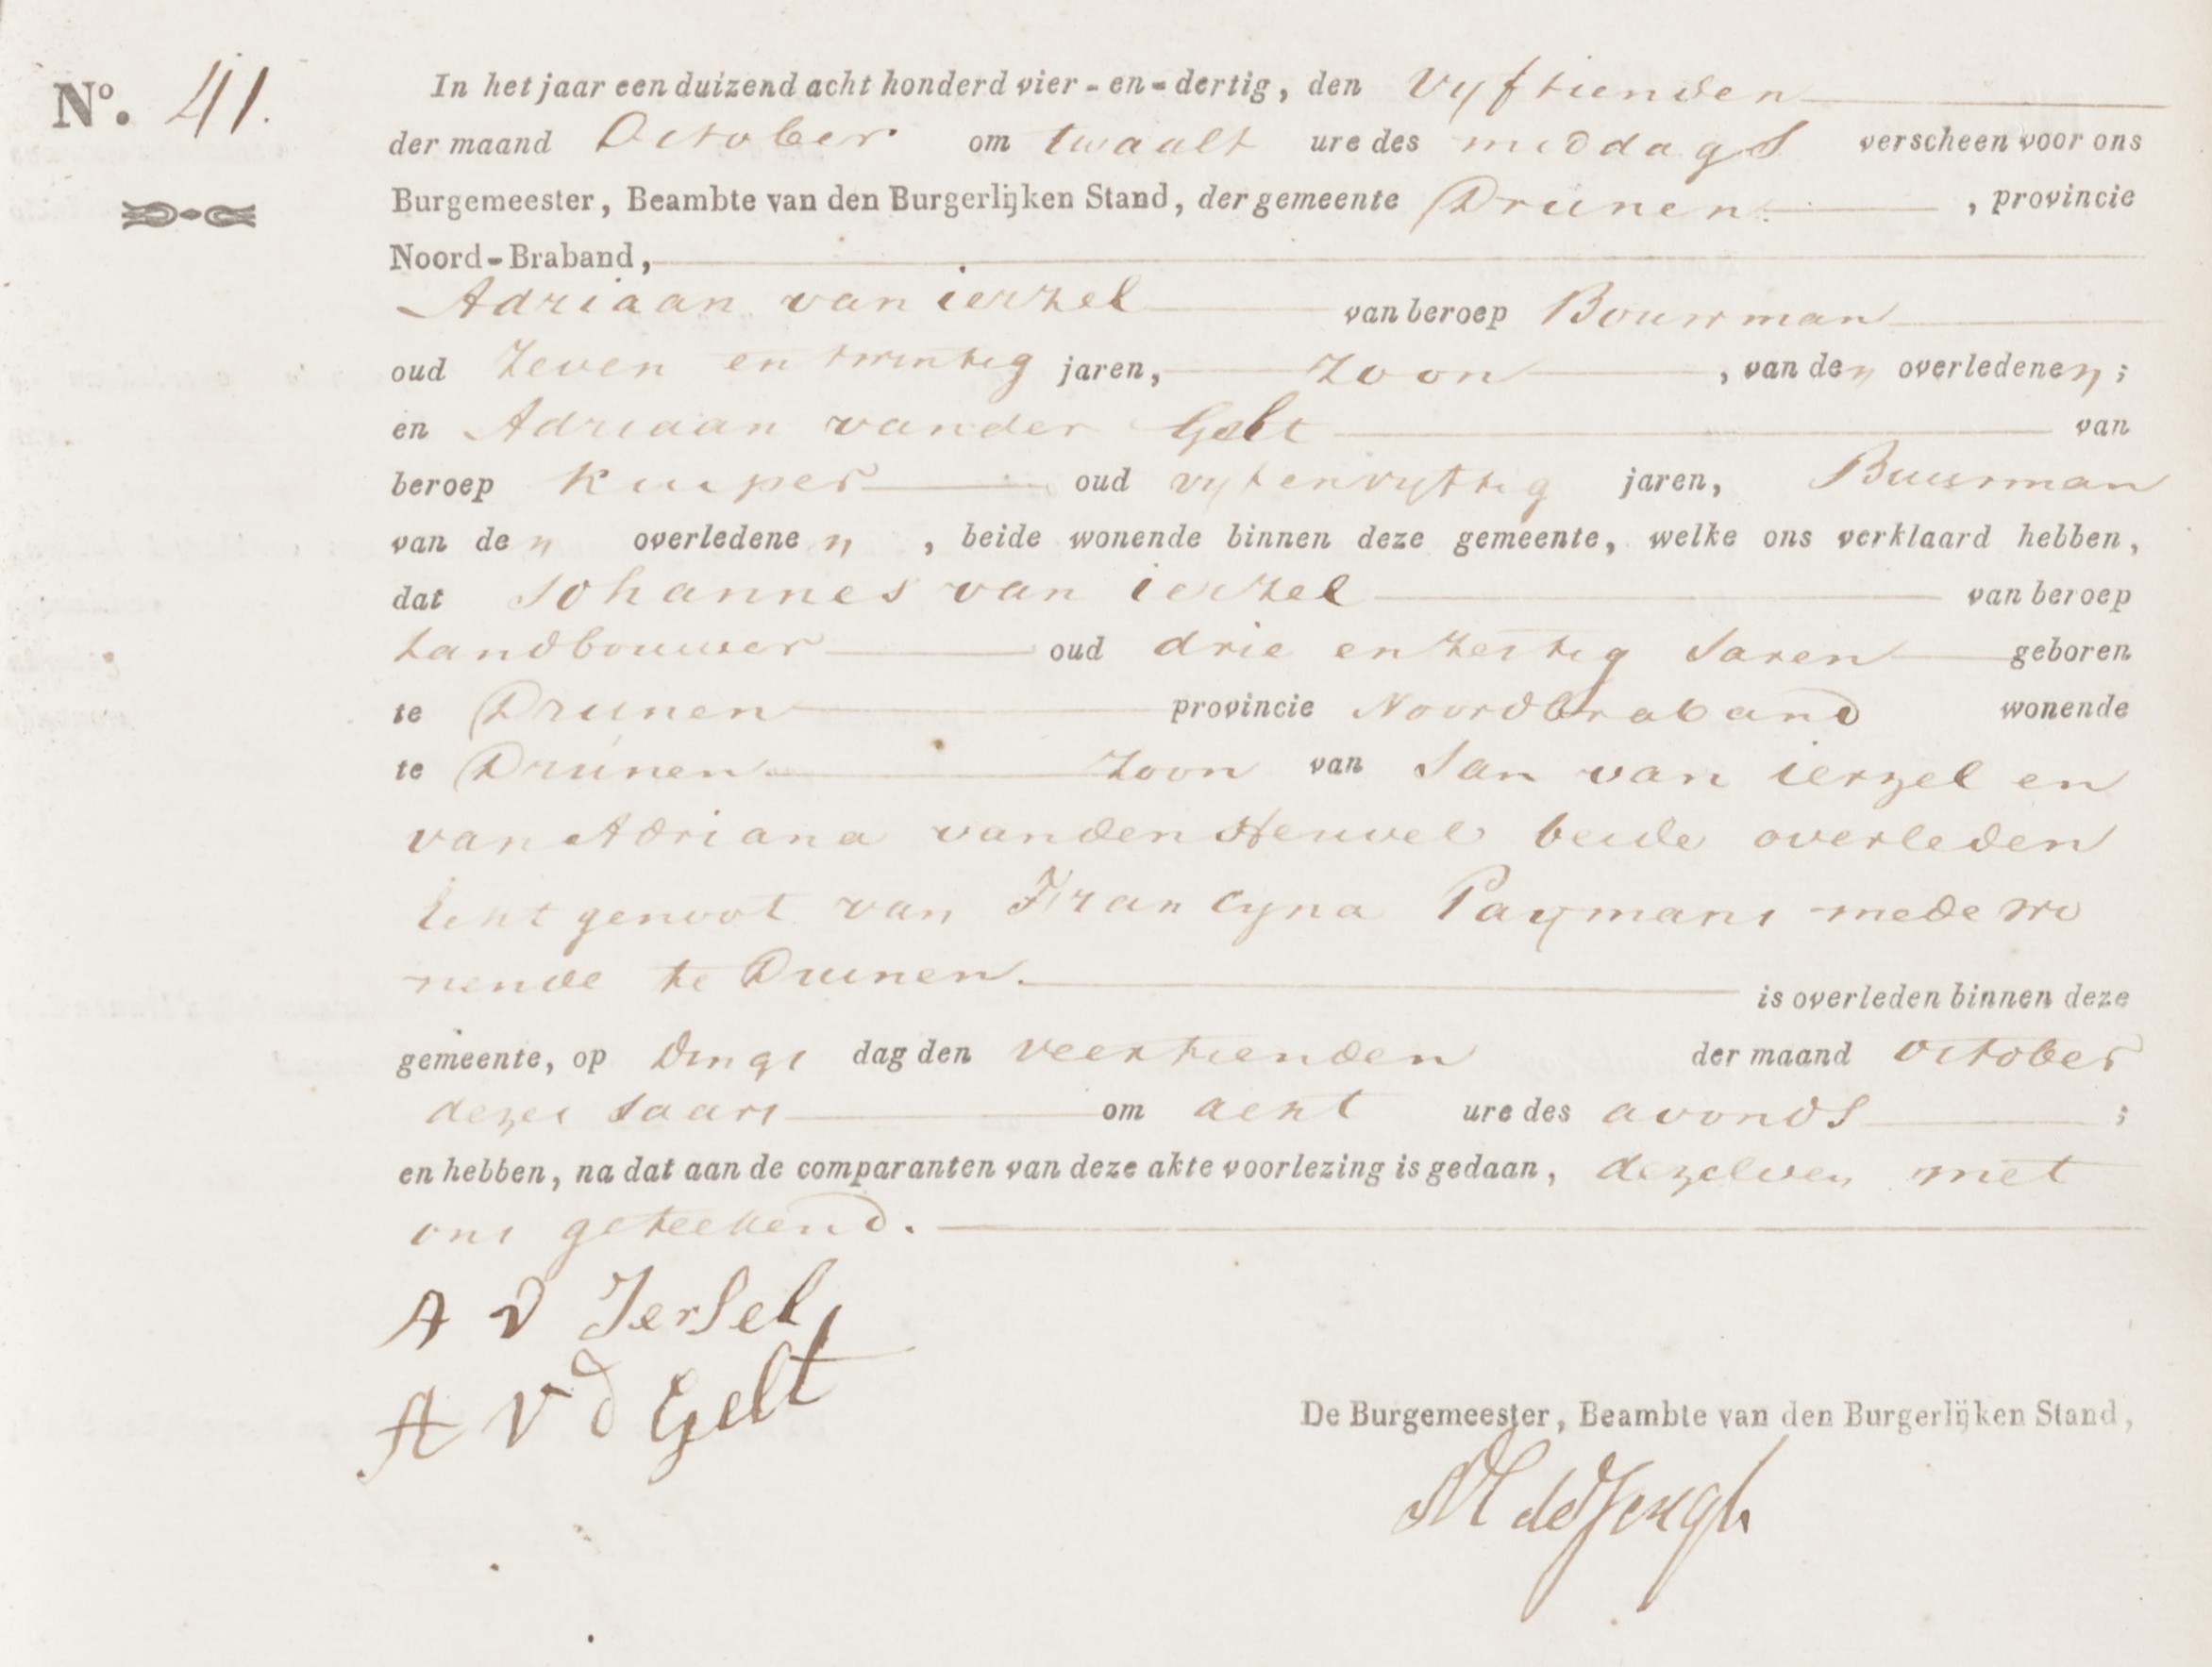 No. 41.
In het jaar een duizend acht honderd vier-en-dertig, den vyftienden
der maand October om twaalf ure des middags verscheen voor ons
Burgemeester, Beambte van den Burgerlijken Stand, der gemeente Drunen, provincie
Noord-Braband,
Adriaan van ierzel van beroep Bouwman
oud zeven en twintig jaren, zoon, van den overledenen;
en Adriaan vander Gelt van
beroep kuiper oud vyfenvyftig jaren, Buurman
van den overledenen, beide wonende binnen deze gemeente, welke ons verklaard hebben,
dat Johannes van ierzel van beroep
Landbouwer oud drie enzestig Jaren geboren
te Drunen provincie Noordbraband wonende
te Drunen zoon van Jan van ierzel en
van Adriana vanden Heuvel beide overleden
Echtgenoot van Francyna Paymans mede wo
nende te Drunen. is overleden binnen deze
gemeente, op Dings dag den veertienden der maand october
dezes Jaars om acht ure des avonds;
en hebben, na dat aan de comparanten van deze akte voorlezing is gedaan, dezelven met
ons geteekend.
A V Jersel
A V d Gelt
De Burgemeester, Beambte van den Burgerlijken Stand,